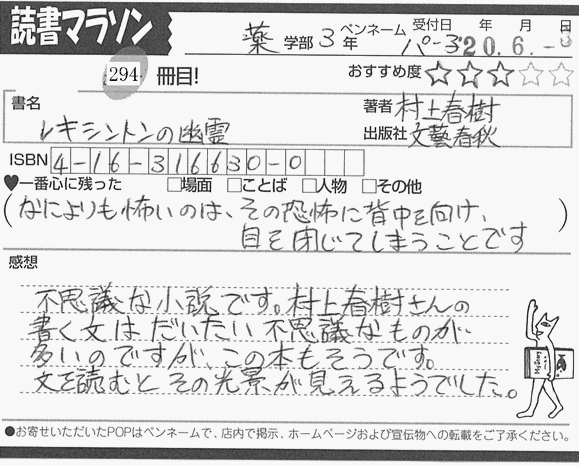 読書マラソン
薬 学部 3年 ペンネーム パーヌ 受付日 年 月 日
20.6.-3
294 冊目! おすすめ度 ☆☆☆☆☆
書名 著者 村上春樹
レキシントンの幽霊 出版社 文藝春秋
ISBN 4-16-316630-0
♥一番心に残った □場面 □ことば □人物 □その他
(なによりも怖いのは、その恐怖に背中を向け、
目を閉じてしまうことです)
感想
不思議な小説です。村上春樹さんの
書く文はだいたい不思議なものが
多いのですが、この本もそうです。
文を読むとその光景が見えるようでした。
●お寄せいただいたPOPはペンネームで、店内で掲示、ホームページおよび宣伝物への転載をご了承ください。